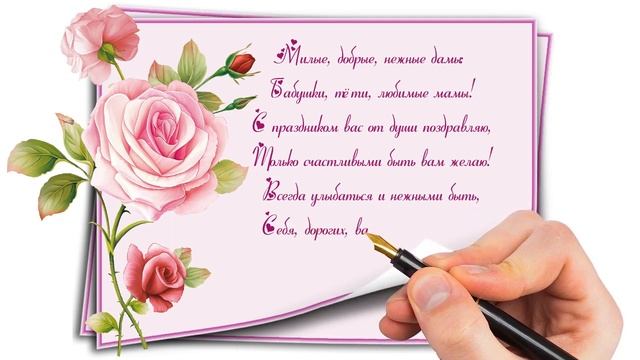 Милые, добрые, нежные дамы:
Бабушки, тёти, любимые мамы!
С праздником вас от души поздравляю,
Только счастливыми быть вам желаю!
Всегда улыбаться и нежными быть,
Себя, дорогих, ва